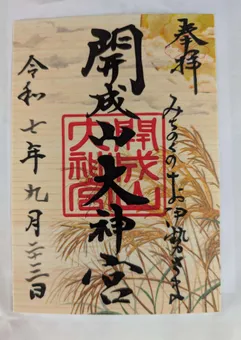 奉拝
みちのくのお伊勢さま
開成山大神宮
開成山
大神宮
令和七年九月二十三日